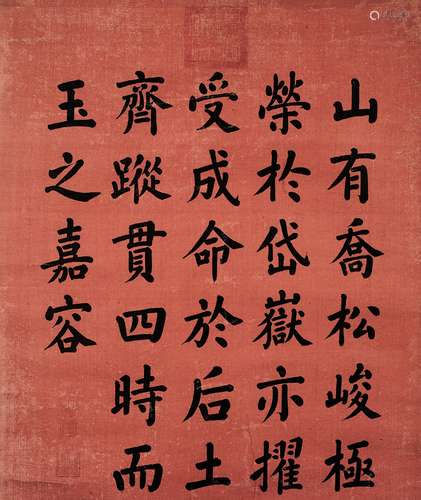 山有喬松峻極
榮於岱嶽亦擢
受成命於后土
齊蹤貫四時而
玉之嘉容